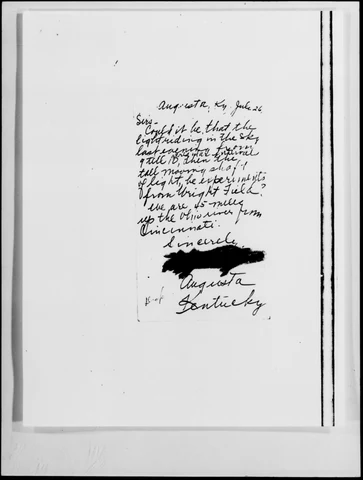 Augusta, Ky. July 26
Sirs -
Could it be that the
light riding in the sky
last evening from
9 till 10, then the
tell moving shaft
of light, be experiments
from Wright Field?
We are 45 miles
up the Ohio river from
Cincinnati.
Sincerely
Augusta
Kentucky